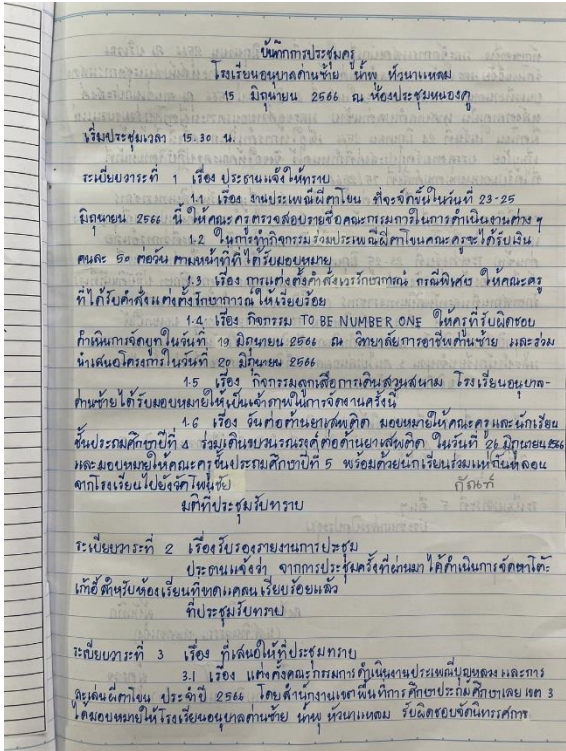 บันทึกการประชุมครู
โรงเรียนอนุบาลด่านซ้าย น้ำพุ หัวนาแหลม
15 มิถุนายน 2566 ณ ห้องประชุมหนองคู
เริ่มประชุมเวลา 15.30 น.
ระเบียบวาระที่ 1 เรื่อง ประธานแจ้งให้ทราบ
1.1 เรื่อง งานประเพณีผีตาโขน ที่จะจัดขึ้นในวันที่ 23-25
มิถุนายน 2566 นี้ ให้คณะครูตรวจสอบรายชื่อคณะกรรมการในการดำเนินงานต่าง ๆ
1.2 ในการทำกิจกรรมร่วมประเพณีผีตาโขนคณะครูจะได้รับเงิน
คนละ 50 ต่อวัน ตามหน้าที่ที่ได้รับมอบหมาย
1.3 เรื่อง การแต่งตั้งคำสั่งเวรรักษาการณ์ กรณีพิเศษ ให้คณะครู
ที่ได้รับคำสั่งแต่งตั้งรักษาการณ์ให้เรียบร้อย
1.4 เรื่อง กิจกรรม TO BE NUMBER ONE ให้ครูที่รับผิดชอบ
ดำเนินการจัดบูทในวันที่ 19 มิถุนายน 2566 ณ วิทยาลัยการอาชีพด่านซ้าย และร่วม
นำเสนอโครงการในวันที่ 20 มิถุนายน 2566
1.5 เรื่อง กิจกรรมลูกเสือการเดินสวนสนาม โรงเรียนอนุบาล-
ด่านซ้ายได้รับมอบหมายให้เป็นเจ้าภาพในการจัดงานครั้งนี้
1.6 เรื่อง วันต่อต้านยาเสพติด มอบหมายให้คณะครูและนักเรียน
ชั้นประถมศึกษาปีที่ 4 ร่วมเดินขบวนรณรงค์ต่อต้านยาเสพติด ในวันที่ 26 มิถุนายน 2566
และมอบหมายให้คณะครูชั้นประถมศึกษาปีที่ 5 พร้อมด้วยนักเรียนร่วมแห่กัณฑ์หลอน
จากโรงเรียนไปยังวัดโพนชัย กัณฑ์
มติที่ประชุมรับทราบ
ระเบียบวาระที่ 2 เรื่องรับรองรายงานการประชุม
ประธานแจ้งว่า จากการประชุมครั้งที่ผ่านมา ได้ดำเนินการจัดหาโต๊ะ
เก้าอี้สำหรับห้องเรียนที่ขาดแคลนเรียบร้อยแล้ว
ที่ประชุมรับทราบ
ระเบียบวาระที่ 3 เรื่อง ที่เสนอให้ที่ประชุมทราบ
3.1 เรื่อง แต่งตั้งคณะกรรมการดำเนินงานประเพณีบุญหลวง และการ
ละเล่นผีตาโขน ประจำปี 2566 โดยสำนักงานเขตพื้นที่การศึกษาประถมศึกษาเลย เขต 3
ได้มอบหมายให้โรงเรียนอนุบาลด่านซ้าย น้ำพุ หัวนาแหลม รับผิดชอบจัดนิทรรศการ